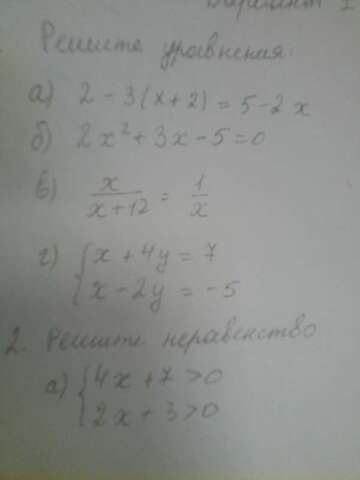 Вариант I
Решите уравнения:
а) 2 - 3(x+2) = 5-2x
б) 2x² + 3x - 5 = 0
в) x/(x+12) = 1/x
г) { x + 4y = 7
x - 2y = -5
2. Решите неравенство
а) { 4x + 7 > 0
2x + 3 > 0